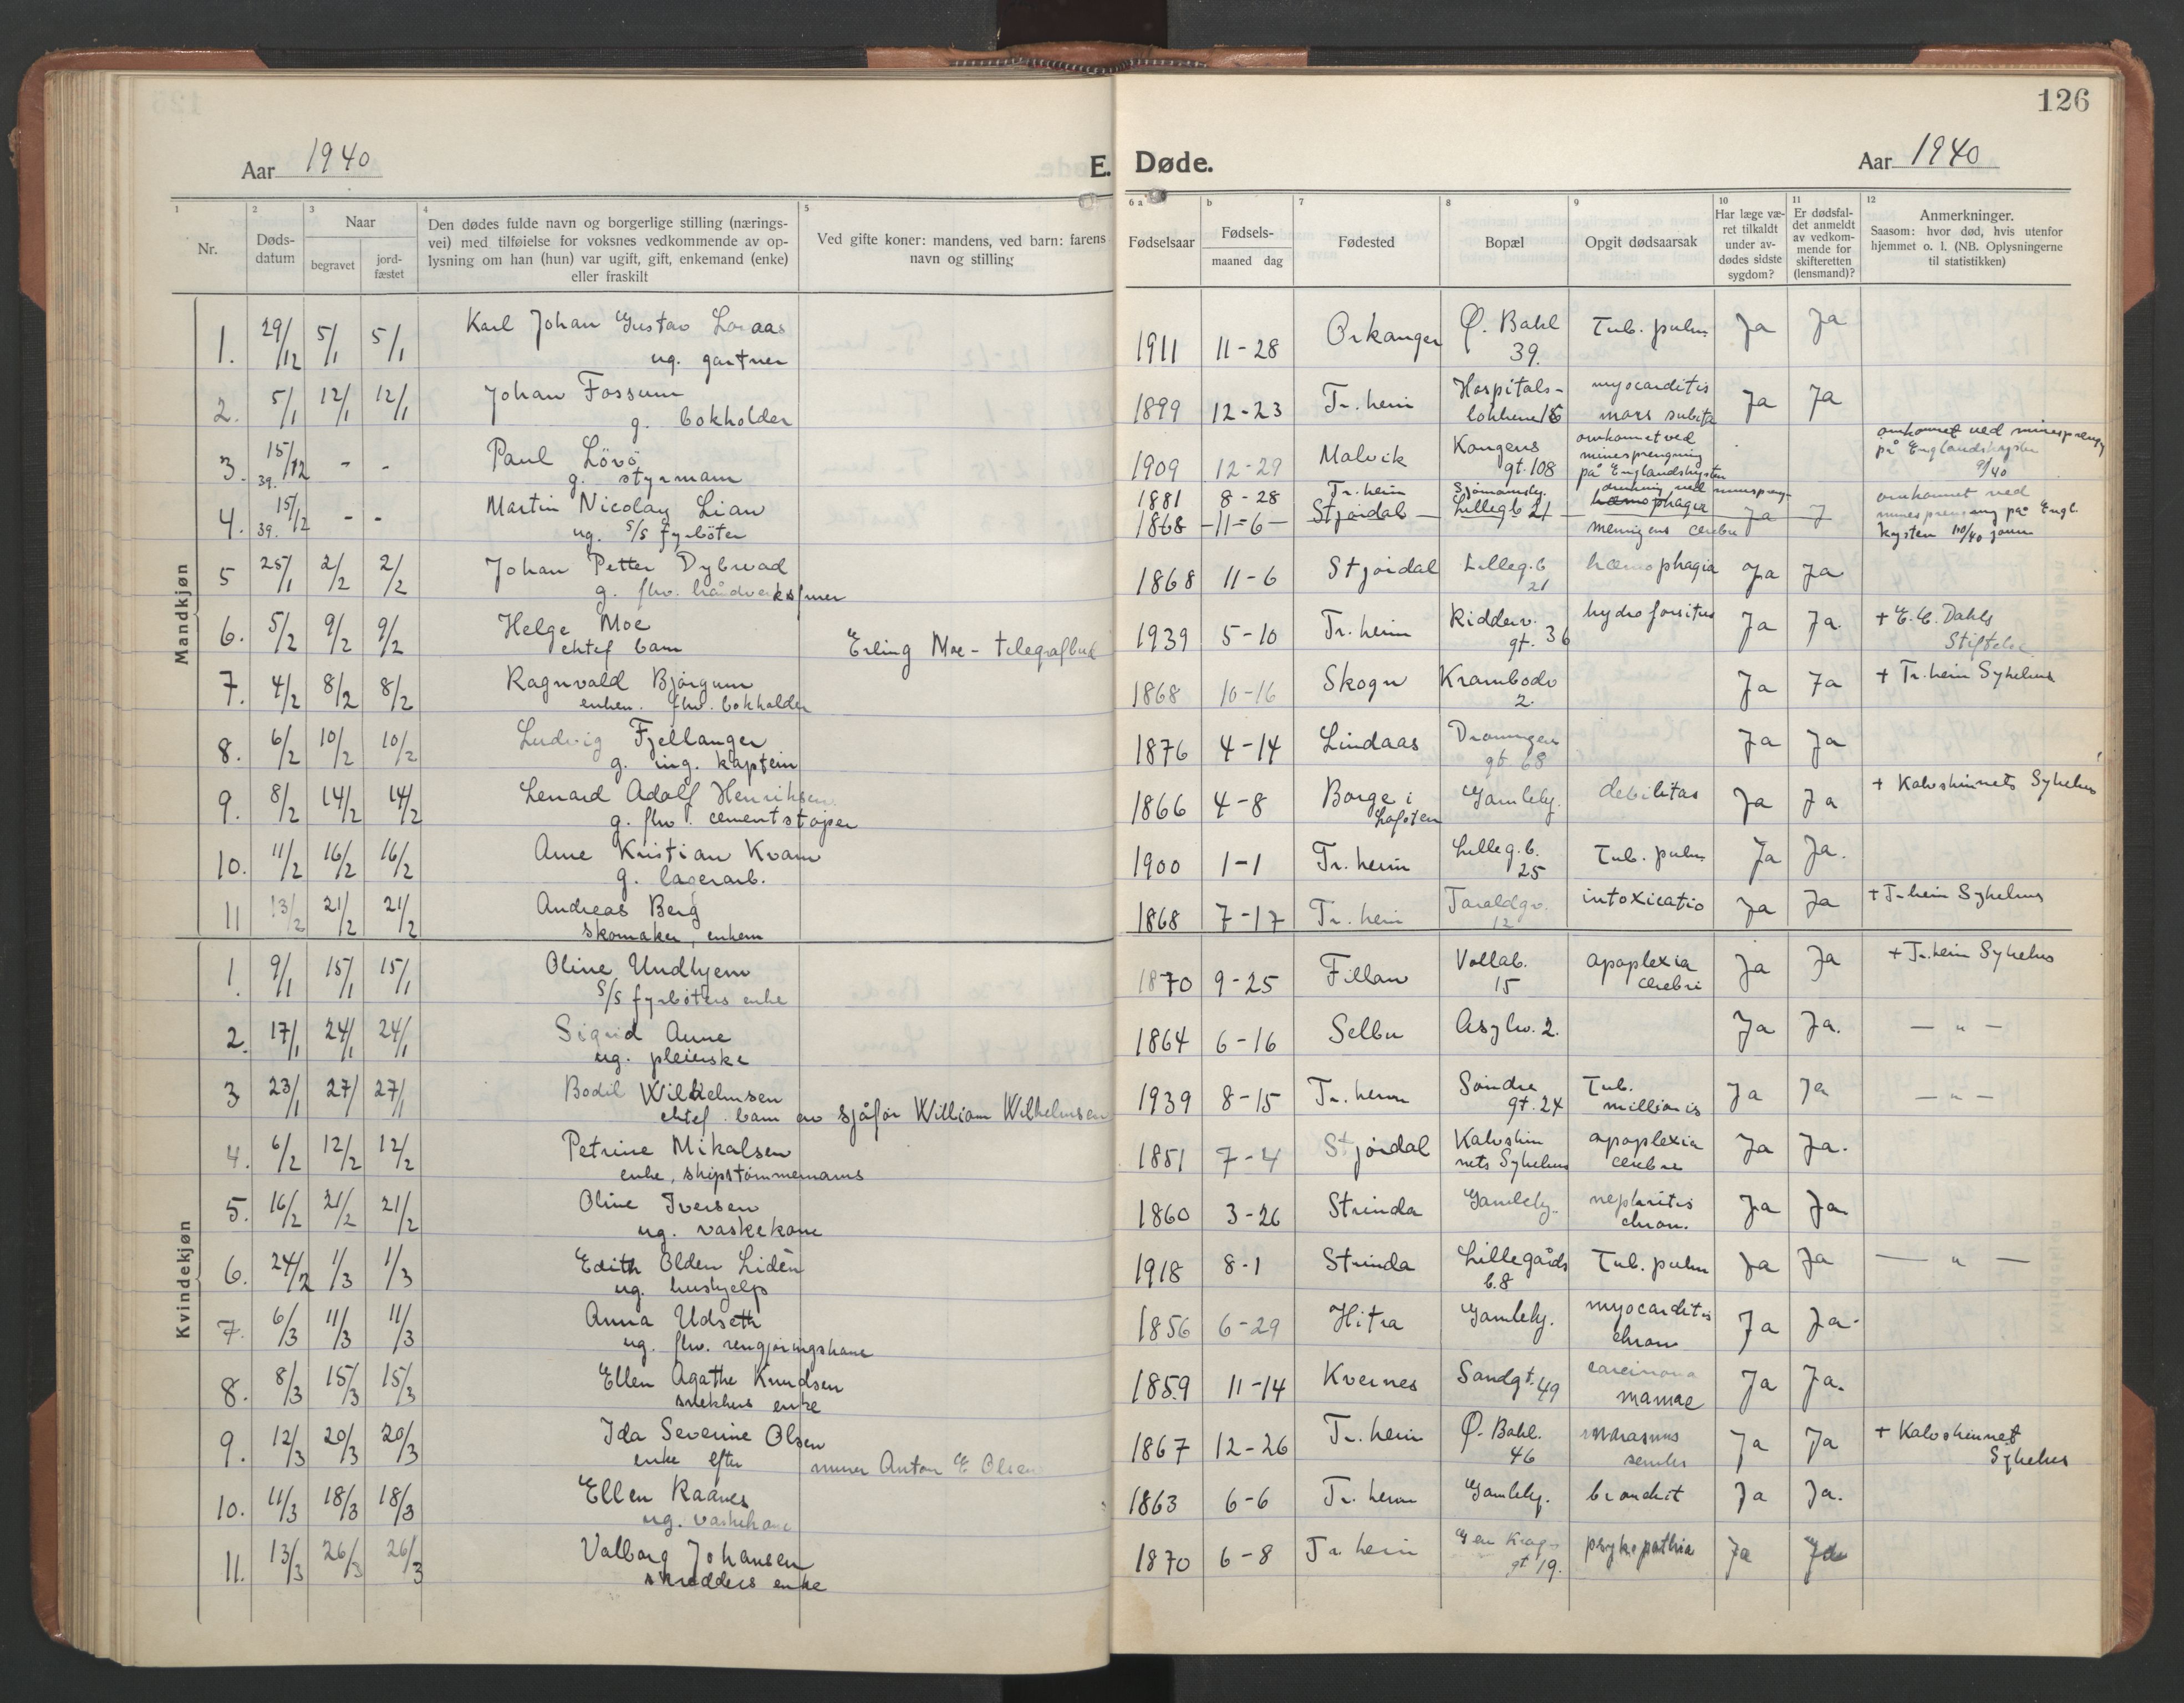 126
Aar 1940
E. Døde.
Aar 1940
1 2 3 4 5 6 a b 7 8 9 10 11 12
Nr.
Døds-
datum
Naar
begravet
jord-
fæstet
Den dødes fulde navn og borgerlige stilling (nærings-
vei) med tilføielse for voksnes vedkommende av op-
lysning om han (hun) var ugift, gift, enkemand (enke)
eller fraskilt
Ved gifte koner: mandens, ved barn: farens
navn og stilling
Fødselsaar
Fødsels-
maaned dag
Fødested
Bopæl
Opgit dødsaarsak
Har læge væ-
ret tilkaldt
under av-
dødes sidste
sygdom?
Er dødsfal-
det anmeldt
av vedkom-
mende for
skifteretten
(lensmand)?
Anmerkninger.
Saasom: hvor død, hvis utenfor
hjemmet o. l. (NB. Oplysningerne
til statistikken)
Mandkjøn
1. 29/12 5/1 5/1 Karl Johan Gustav Loraas
ug. gartner
1911 11-28 Orkanger Ø. Bakl 39. Tub. pulm Ja Ja
2. 5/1 12/1 12/1 Johan Fossum
g. bokholder
1899 12-23 Tr.heim Hospitals-
løkkene 15 myocarditis
mors subita Ja Ja
3. 15/12 39. - - Paul Lövö
g. styrmann
1909 12-29 Malvik Kongens
gt. 108 omkomet ved
minesprengning
på Englandskysten
omkommet ved minespreng
på Englandskysten
9/40
4. 15/12 39. - - Martin Nicolay Lian
ug. S/S fyrböter
1881 8-28 Tr.heim Sjömannsby. drukning ved minespreng-
omkommet ved
minesprengning på Engl.
kysten
1868 11-6 Stjördal Lillegb 21 hæmophagia Ja J
meningens cerebri
5 25/1 2/2 2/2 Johan Petter Dybwad
g. fhv. håndverksmer
1868 11-6 Stjördal Lilleg.b 21 hæmophagia Ja Ja
6. 5/2 9/2 9/2 Helge Moe
ektef barn
Erling Moe - telegrafbud
1939 5-10 Tr.heim Ridderv.
gt. 36 Ja Ja.
+ E. C. Dahls
Stiftelse.
7. 4/2 8/2 8/2 Ragnvald Bjørgum
enkem. fhv. bokholder
1868 10-16 Skogn Krambodv
2. Ja Ja + Tr.heim Sykehus
8. 6/2 10/2 10/2 Ludvig Fjellanger
g. ing. kaptein
1876 4-14 Lindaas Dronningen
gt 68 Ja Ja
9. 8/2 14/2 14/2 Lenard Adolf Henriksen
g. fhv. cementstöper
1866 4-8 Borge i
Lofoten Gamleby. debilitas Ja Ja + Kalvskinnets Sykehus
10. 11/2 16/2 16/2 Arne Kristian Kvam
g. lagerarb.
1900 1-1 Tr.heim Lilleg.b.
25 Tub. pulm Ja Ja.
11 13/2 21/2 21/2 Andreas Berg
skomaker, enkem
1868 7-17 Tr.heim Taraldgv.
12 intoxicatio Ja Ja + Tr.heim Sykehus
Kvindekjøn
1. 9/1 15/1 15/1 Oline Undhjem
S/S fyrböters enke
1870 9-25 Fillan Vollab.
15 apoplexia
cerebri Ja Ja + Tr.heim Sykehus
2. 17/1 24/1 24/1 Sigrid Aune
ug. pleierske
1864 6-16 Selbu Asylv. 2. Ja Ja. — " —
3 23/1 27/ 27/1 Bodil Wilhelmsen
ektef. barn av sjåför William Wilhelmsen
1939 8-15 Tr.heim Söndre
gt. 24 Tub.
millionis Ja Ja — " —
4. 6/2 12/2 12/2 Petrine Mikalsen
enke, skipstömmermanns
1851 7-4 Stjördal Kalvskin
nets Sykehus apoplexia
cerebri Ja Ja.
5. 16/2 21/2 21/2 Oline Iversen
ug. vaskekone
1860 3-26 Strinda Gamleby. nephritis
chron. Ja Ja
6. 24/2 1/3 1/3 Edith Olden Lidén
ug. hushjelp
1918 8-1 Strinda Lillegårds
b. 8 Tub. pulm Ja Ja — " —
7. 6/3 11/3 11/3 Anna Udseth
ug. fhv. rengjöringskone
1856 6-29 Hitra Gamleby. myocarditis
chron Ja Ja.
8. 8/3 15/3 15/3 Ellen Agathe Knudsen
snekkers enke
1859 11-14 Kvernes Sandgt. 49 carcinoma
mamae Ja Ja.
9. 12/3 20/3 20/3 Ida Severine Olsen
enke efter murer Anton E Olsen
1867 12-26 Tr.heim Ø. Bakl.
46 marasmus
senilis Ja Ja + Kalvskinnet
Sykehus
10. 11/3 18/3 18/3 Ellen Raanes
ug. vaskekone
1863 6-6 Tr.heim Gamleby. bronchit Ja Ja.
11. 13/3 26/3 26/3 Valborg Johansen
skredders enke
1870 6-8 Tr.heim Gen Krags
gt 19. psykopathia Ja Ja